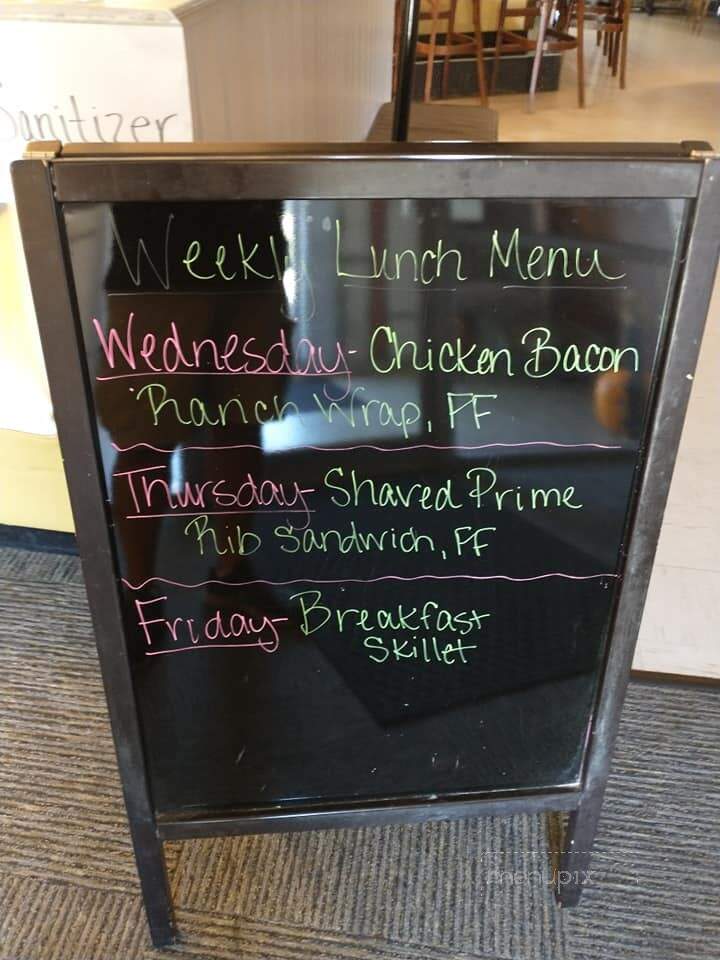 Sanitizer
Weekly Lunch Menu
Wednesday- Chicken Bacon
Ranch Wrap, FF
Thursday- Shaved Prime
Rib Sandwich, FF
Friday- Breakfast
Skillet
menupix